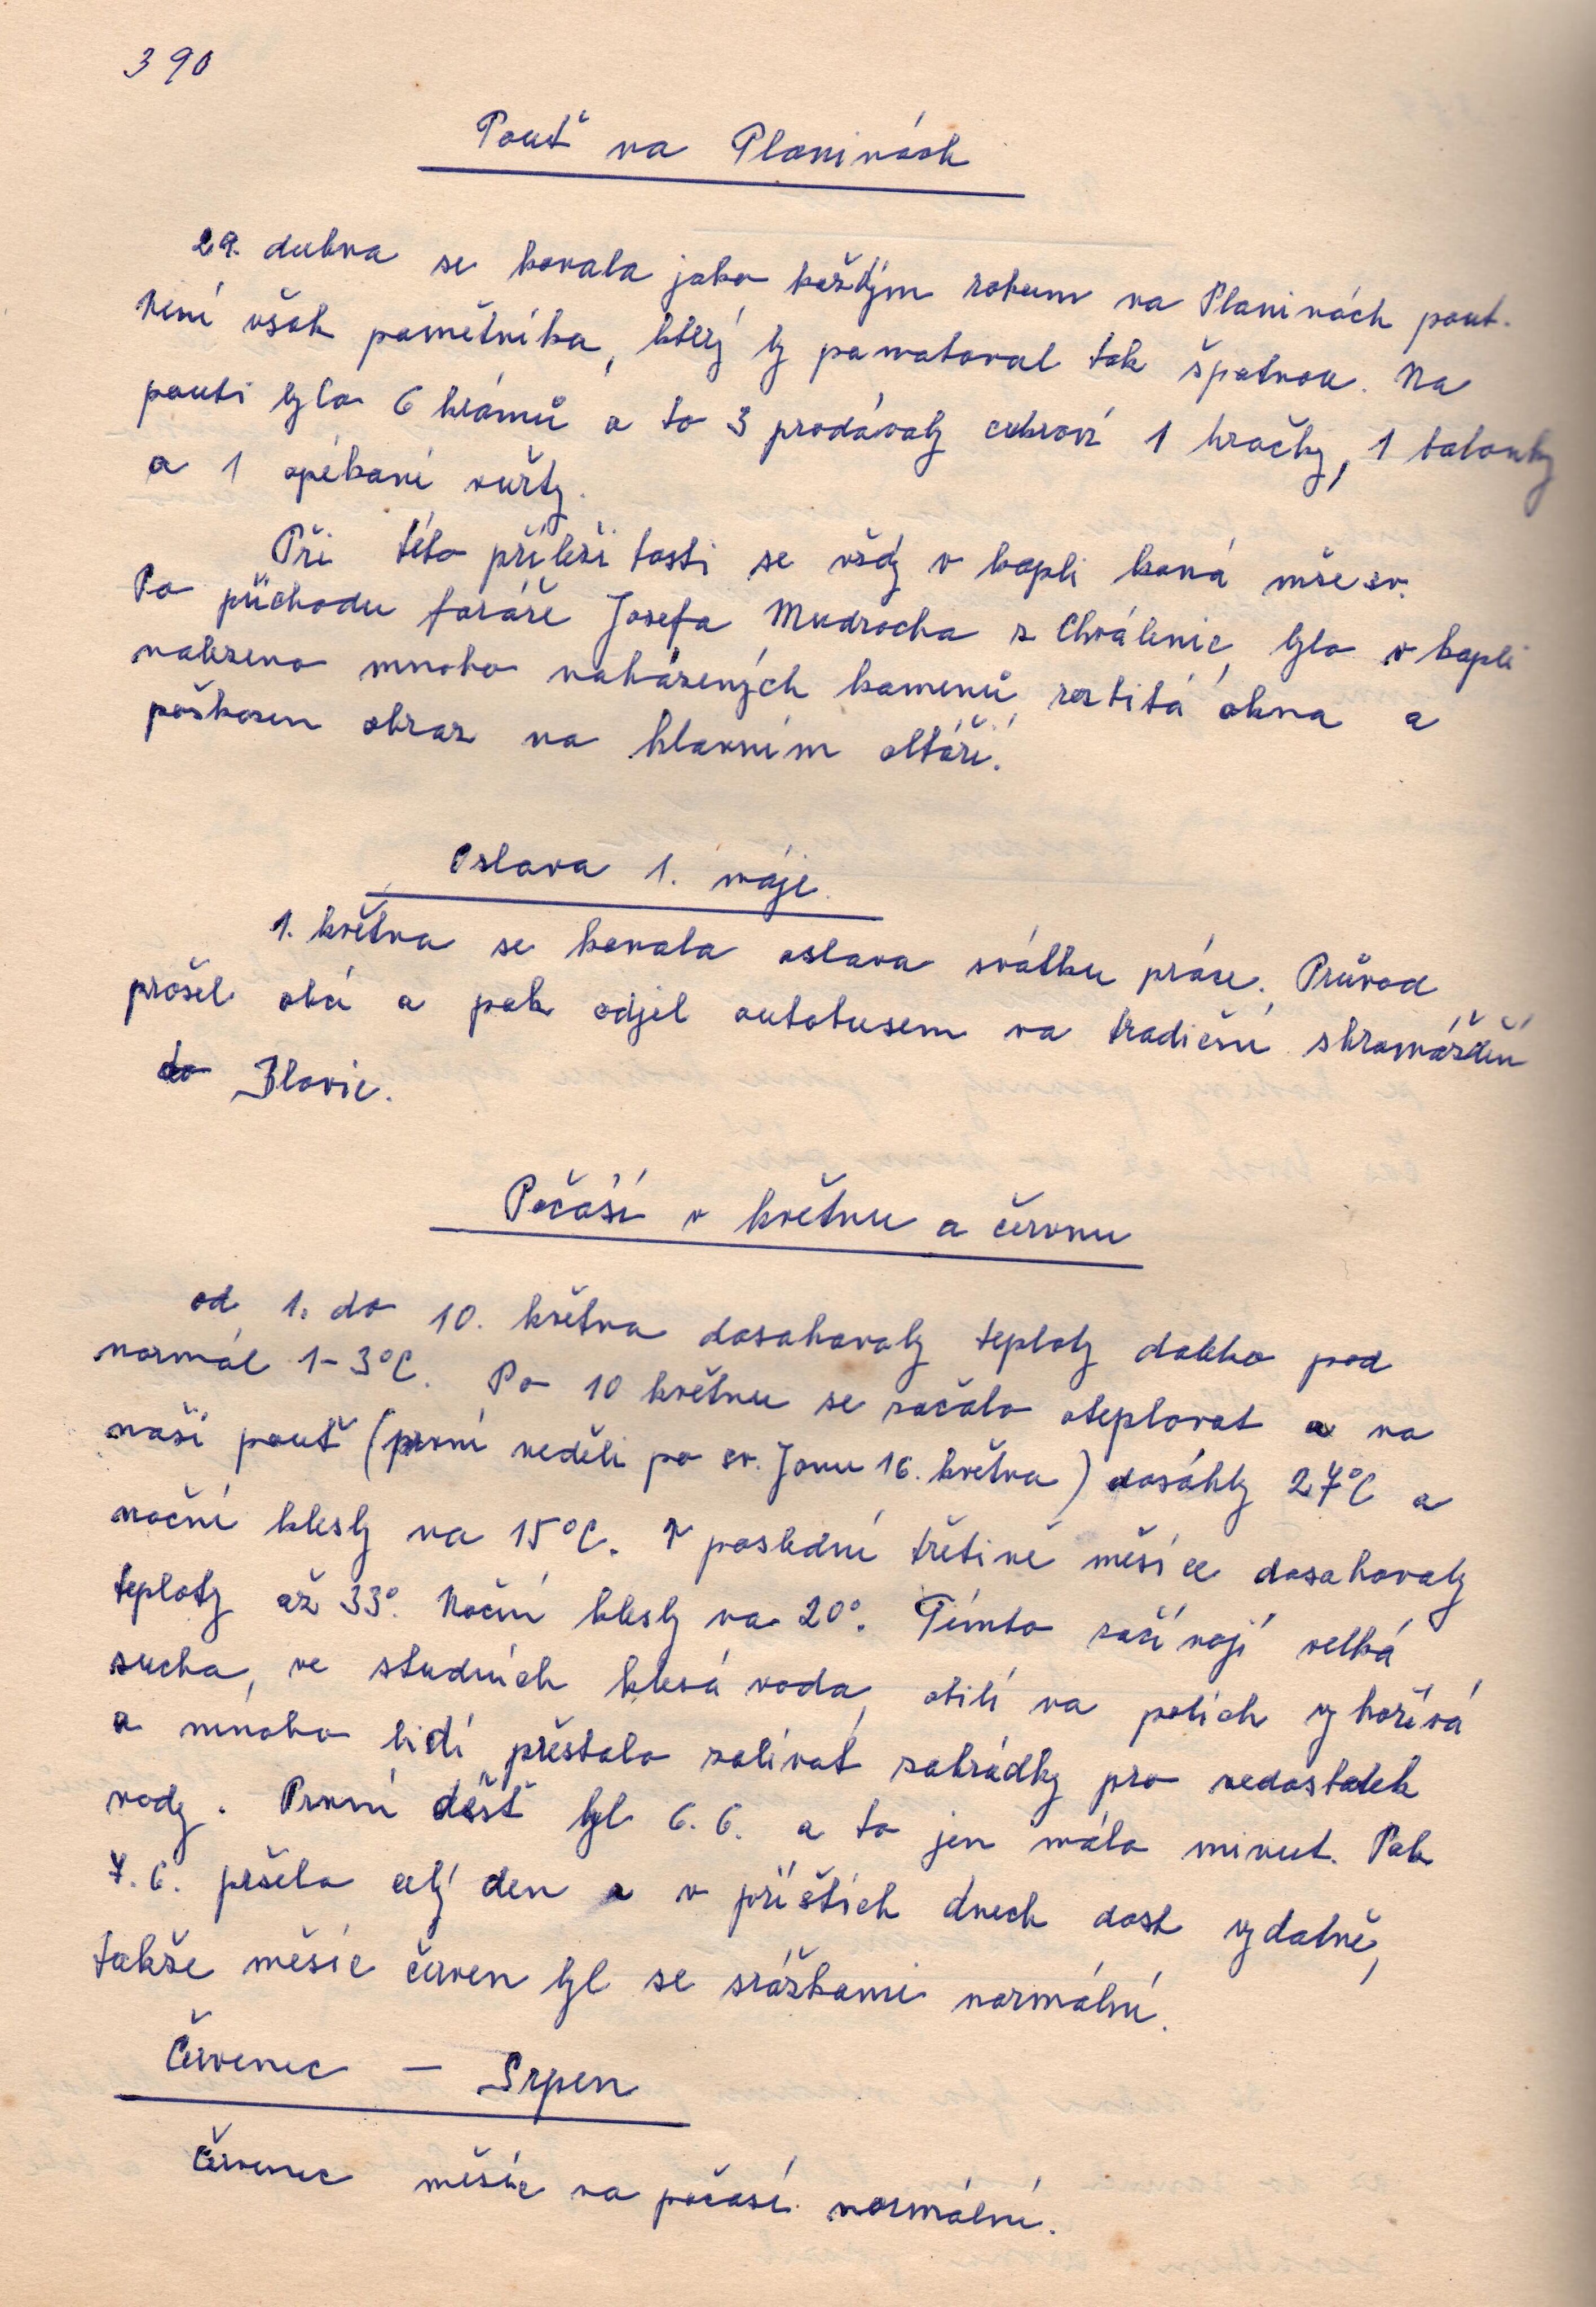 390
Pouť na Planinách
29. dubna se konala jako každým rokem na Planinách pout.
Není však pamětníka, který by pamatoval tak špatnou. Na
pouti bylo 6 krámů a to 3 prodávaly cukroví 1 hračky, 1 balonky
a 1 opékané vuřty.
Při této příležitosti se vždy v kapli koná mše sv.
Po příchodu faráře Josefa Mudrocha z Chválenic, bylo v kapli
nalezeno mnoho naházených kamenů, rozbitá okna a
poškozen obraz na hlavním oltáři.
Oslava 1. máje.
1. května se konala oslava svátku práce. Průvod
prošel obcí a pak odjel autobusem na tradiční shromáždění
do Blovic.
Počaší v květnu a červnu
od 1. do 10. května dosahovaly teploty daleko pod
normál 1-3°C. Po 10 květnu se začalo oteplovat a na
naší pouť (první neděli po sv. Janu 16. května) dosáhly 27°C a
noční klesly na 15°C. V poslední třetině měsíce dosahovaly
teploty až 33°. Noční klesly na 20°. Tímto začínají velká
sucha, ve studních klesá voda, obilí na polích vyhořívá
a mnoho lidí přestalo zalívat zahrádky pro nedostatek
vody. První déšť byl 6. 6. a to jen málo minut. Pak
7. 6. pršelo celý den a v příštích dnech dost vydatně,
takže měsíc červen byl se srážkami normální.
Červenec - Srpen
Červenec měsíc na počasí normální.